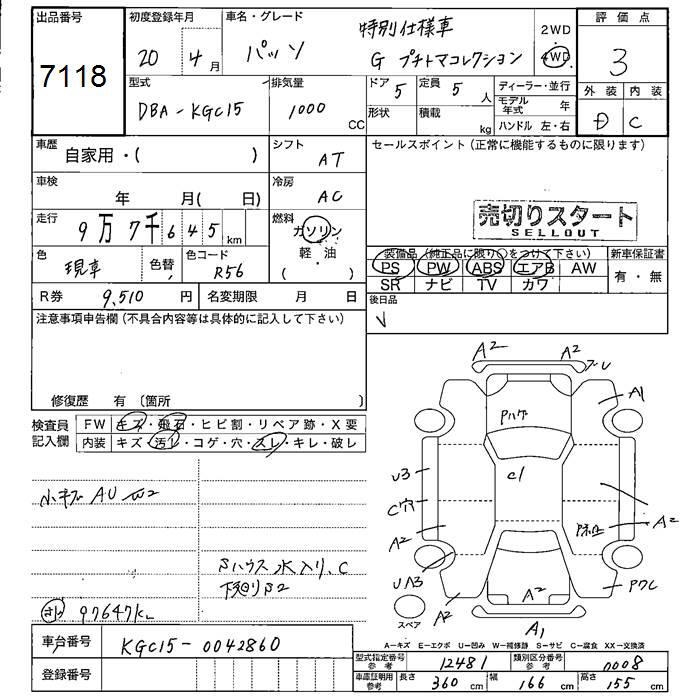 出品番号
7118
初度登録年月
20年 4月
車名・グレード
パッソ
特別仕様車
G プチトマコレクション
2WD
4WD
評価点
3
外装 内装
D C
型式
DBA-KGC15
排気量
1000 CC
ドア 5
定員 5人
形状
積載 kg
ディーラー・並行
モデル年式 年
ハンドル 左・右
車歴
自家用・( )
シフト
AT
車検
年 月( 日)
冷房
AC
走行
9万7千645km
燃料
ガソリン
軽・油
( )
色
現車
色替
色コード
R56
R券 9,510円
名変期限 月 日
セールスポイント(正常に機能するものに限ります)
売切りスタート
SELLOUT
装備品(純正品に限り○をつけて下さい)
新車保証書
PS PW ABS エアB AW
有・無
SR ナビ TV カワ
後日品
注意事項申告欄(不具合内容等は具体的に記入して下さい)
修復歴 有 (箇所 )
検査員
記入欄
FW キズ・飛石・ヒビ割・リペア跡・X要
内装 キズ・汚レ・コゲ・穴・スレ・キレ・破レ
小キズ AU W2
Bハウス 水入り、C
下廻りB2
97647km
車台番号
KGC15-0042860
登録番号
A2
A2
ブレ
A1
Pハゲ
U3
C1
C穴
A2
A2
UA3
A2
A2
A1
スペア
A-キズ E-エクボ U-凹み W-補修跡 S-サビ C-腐食 XX-交換済
型式指定番号 参考
12481
類別区分番号 参考
0008
車庫証明用 参考
長さ 360 cm
幅 166 cm
高さ 155 cm